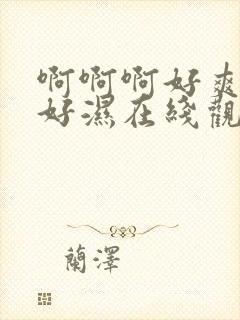 啊啊啊好爽
好濕在綫觀
蘭澤